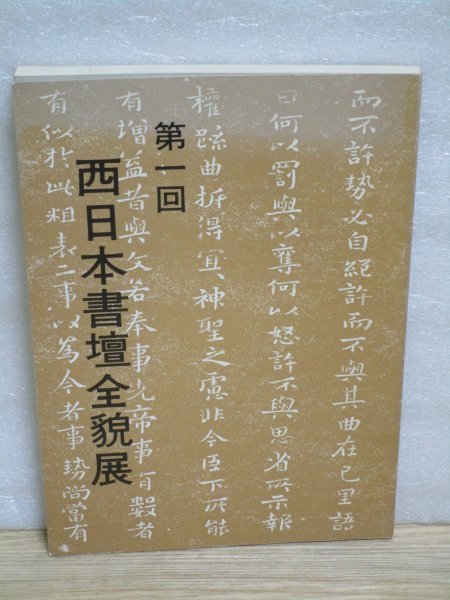 第一回
西日本書壇全貌展
而不許勢必自絕許而不與其曲在己里語
曰何以罰與以奪何以怒許不與思省所示報
權疏曲折得宜神聖之慮非今臣下所能
有增益昔與文若奉事先帝事有數者
有似於此粗表二事以為今者事勢尚當有